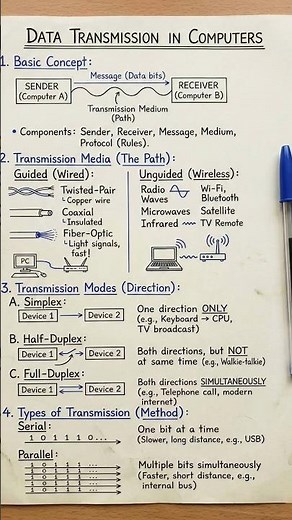 DATA TRANSMISSION IN COMPUTERS
1. Basic Concept:
Message (Data bits)
SENDER
(Computer A)
RECEIVER
(Computer B)
Transmission Medium
(Path)
• Components: Sender, Receiver, Message, Medium,
Protocol (Rules).
2. Transmission Media (The Path):
Guided (Wired):
Twisted-Pair
Copper wire
Coaxial
Insulated
Fiber-Optic
Light signals,
fast!
PC
Unguided (Wireless):
Radio Waves
Wi-Fi, Bluetooth
Microwaves Satellite
Infrared TV Remote
3. Transmission Modes (Direction):
A. Simplex:
Device 1 → Device 2
One direction ONLY
(e.g., Keyboard → CPU,
TV broadcast)
B. Half-Duplex:
Device 1 Device 2
Both directions, but NOT
at same time (e.g., Walkie-talkie)
C. Full-Duplex:
Device 1 Device 2
Both directions SIMULTANEOUSLY
(e.g., Telephone call, modern
internet)
4. Types of Transmission (Method):
Serial:
1 0 1 1 1 0...
One bit at a time
(Slower, long distance, e.g., USB)
Parallel:
1 0 1 1 1 ...
1 0 1 1 1 ...
1 0 1 1 1 ...
1 0 1 1 1 ...
Multiple bits simultaneously
(Faster, short distance, e.g.,
internal bus)